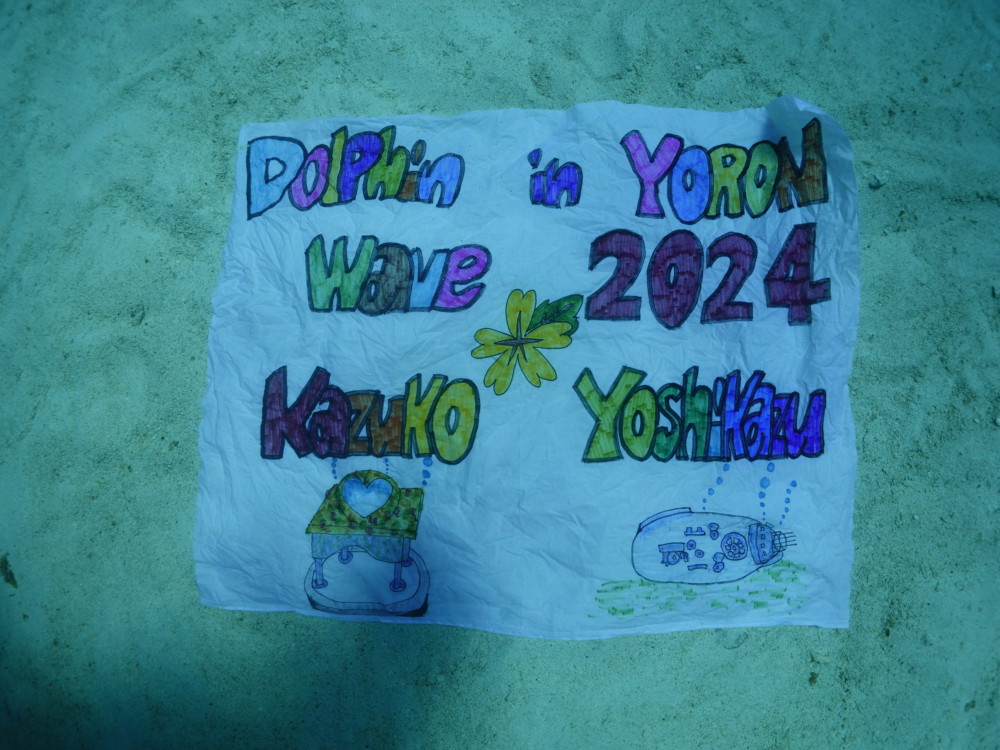 Dolphin in YORON
Wave 2024
Kazuko Yoshikazu